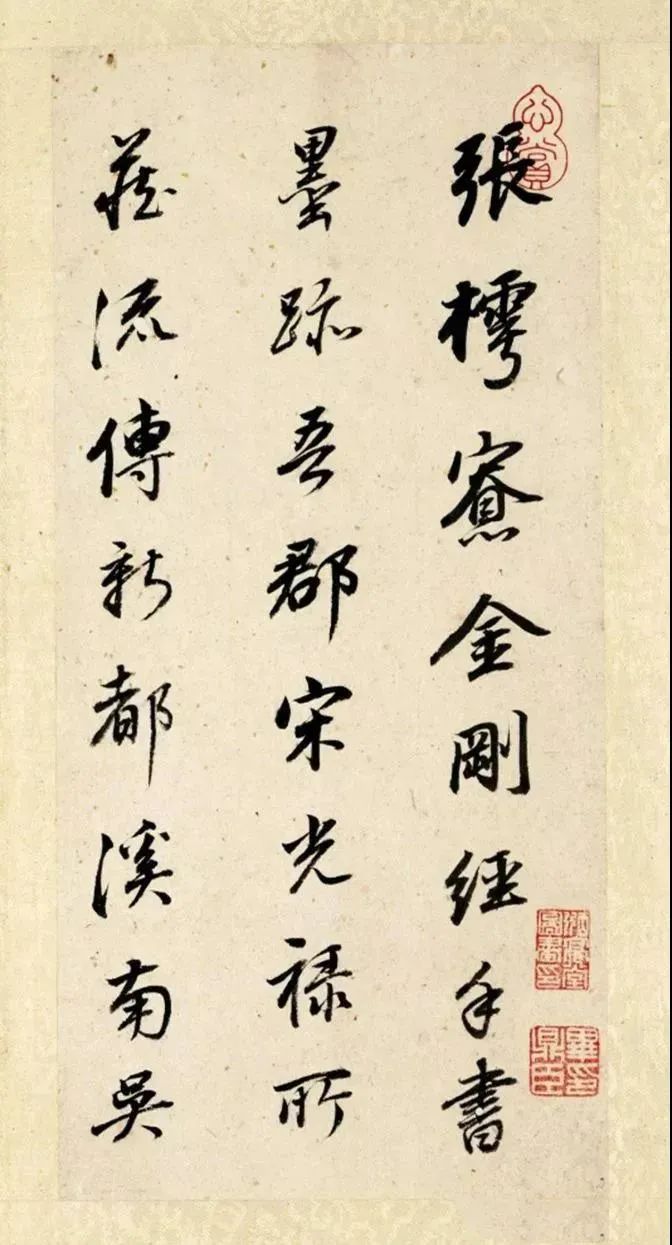 張樗寮金剛經手書
墨跡吾郡宋光祿所
藏流傳新都溪南吳